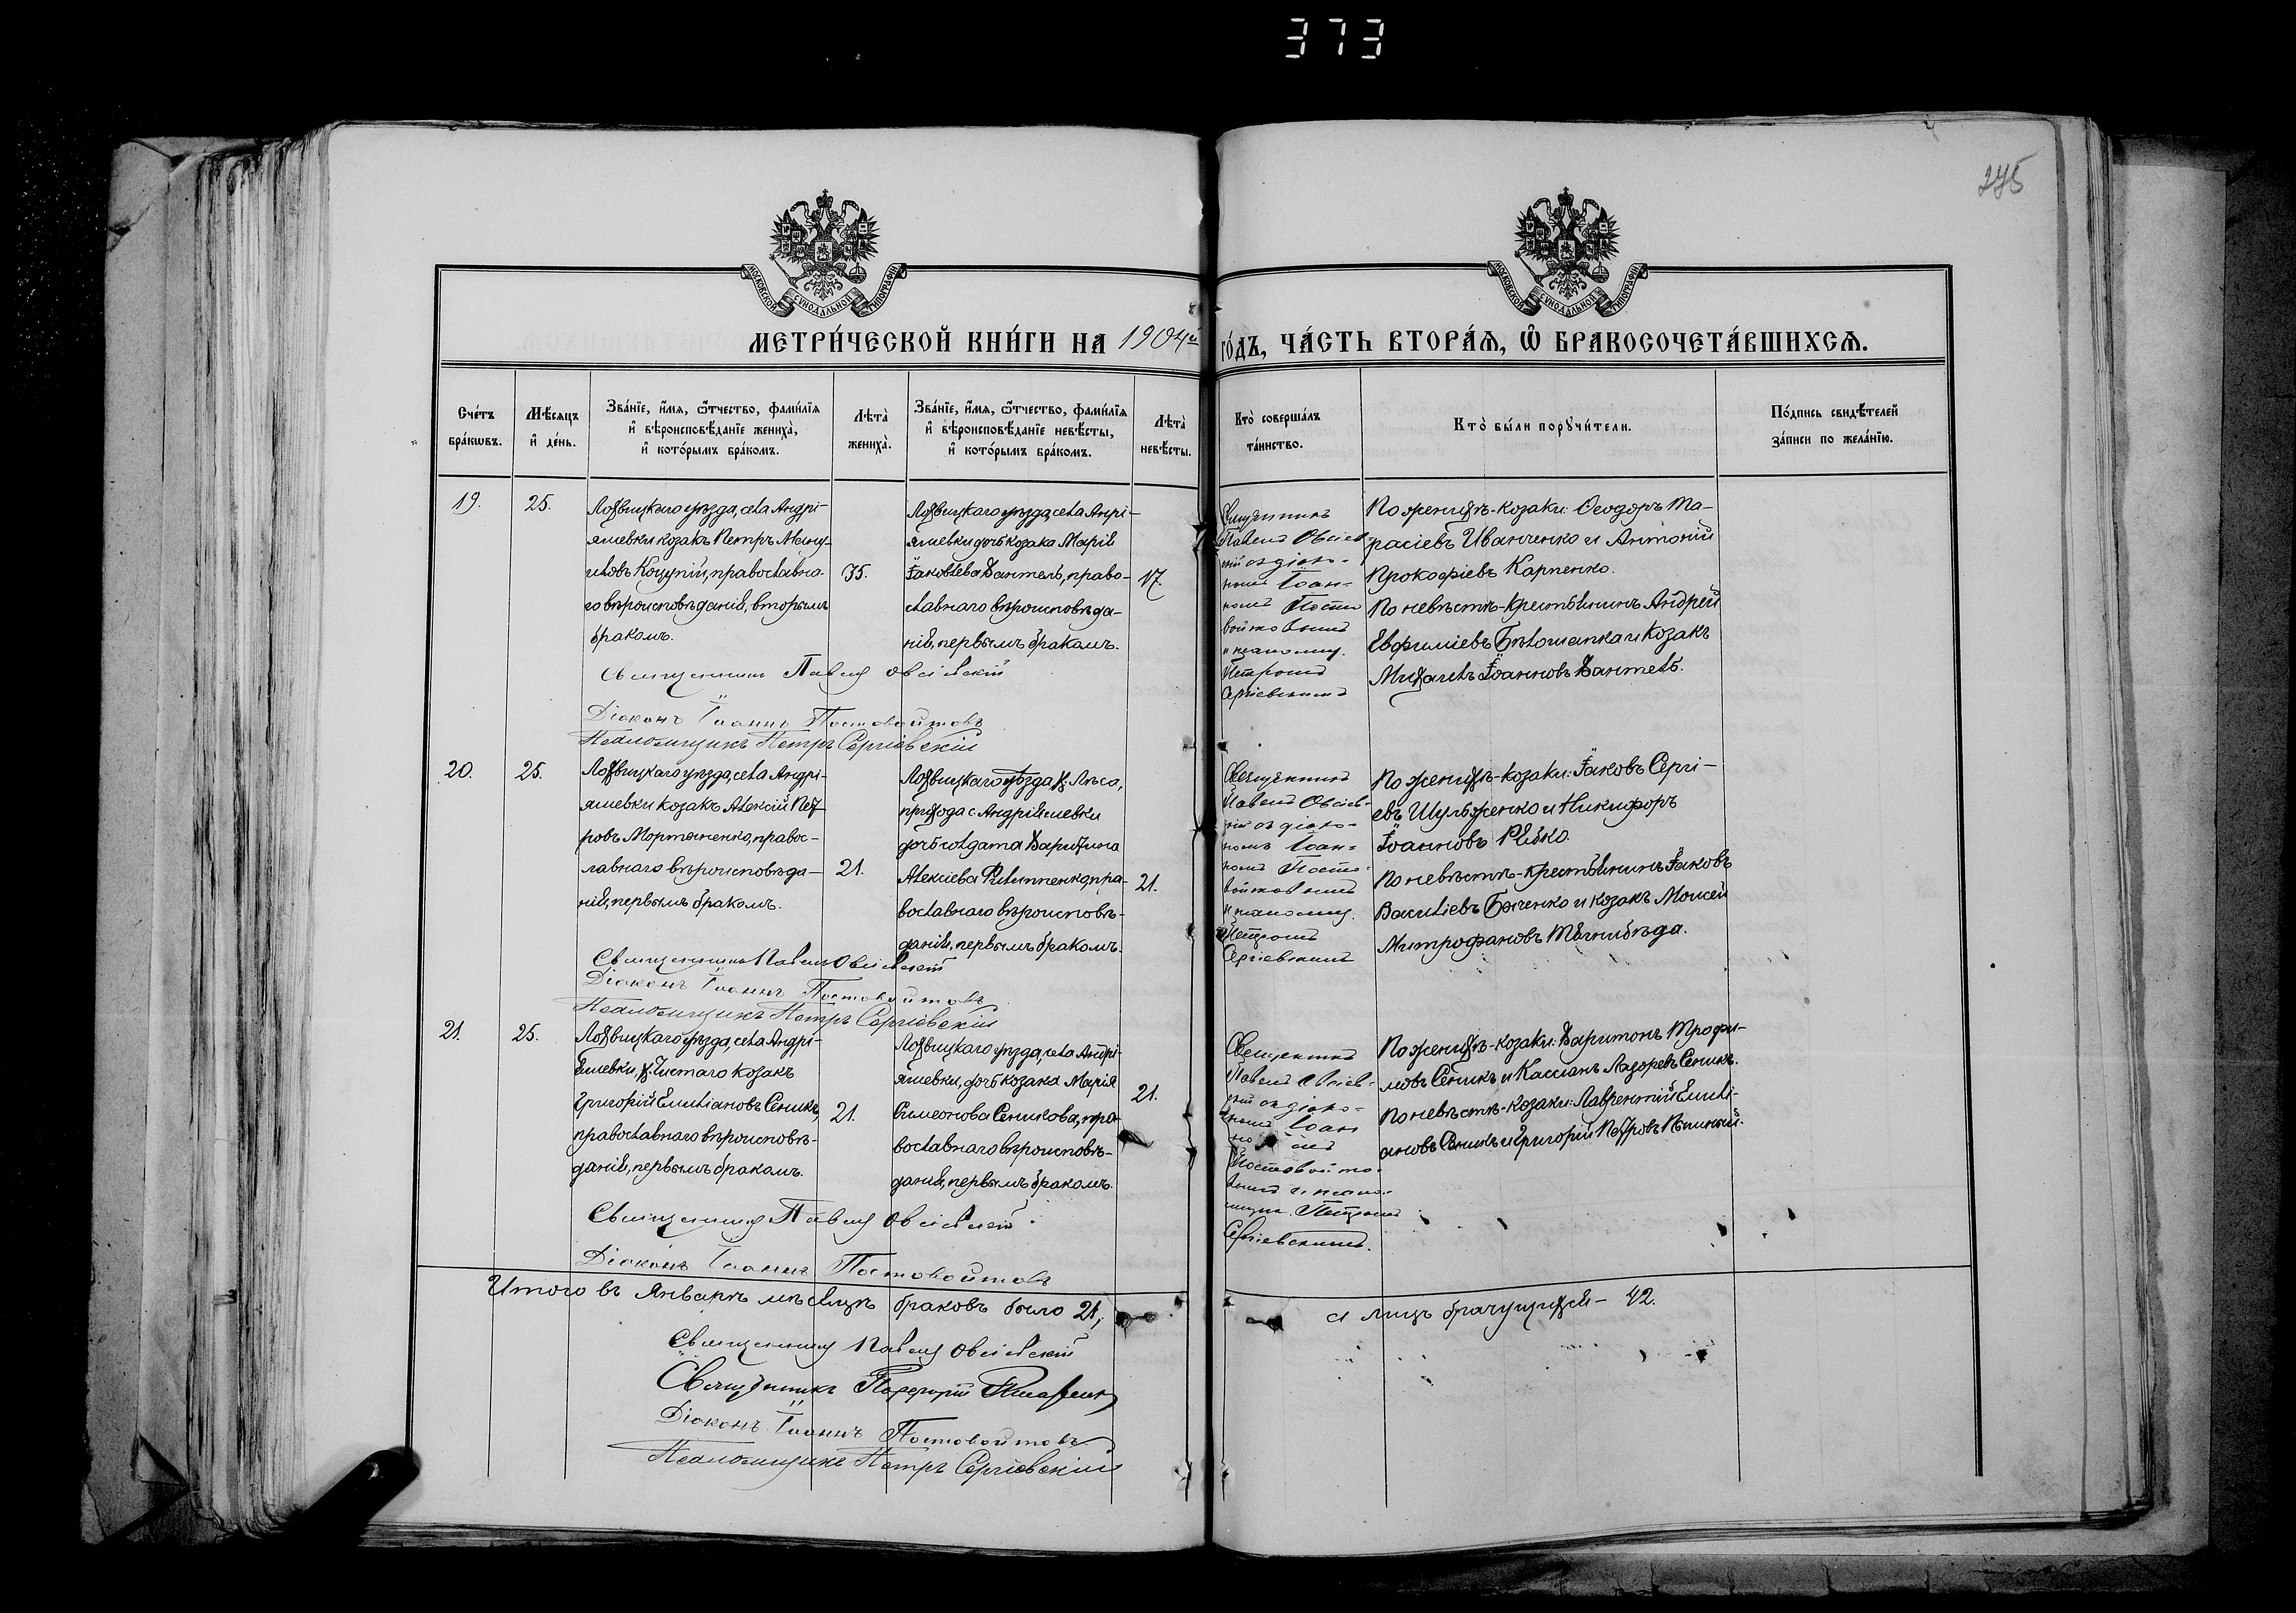 373
275
МОСКОВСКОЙ СѴНОДАЛЬНОЙ ТИПОГРАФІИ
МОСКОВСКОЙ СѴНОДАЛЬНОЙ ТИПОГРАФІИ
МЕТРИ́ЧЕСКОЙ КНИ́ГИ НА 1904й ГО́ДЪ, ЧА́СТЬ ВТОРА́Я, Ѡ҆ БРАКОСОЧЕТА́ВШИХСѦ.
Сче́тъ
бра́кѡвъ.
Мѣ́сяцъ
и҆ де́нь.
Зва́нїе, и҆́мя, ѻ҆́тчество, фами́лїя
и҆ вѣроисповѣ́данїе жениха̀,
и҆ кото́рымъ бра́комъ.
Лѣта̀
жениха̀.
Зва́нїе, и҆́мя, ѻ҆́тчество, фами́лїя
и҆ вѣроисповѣ́данїе невѣ́сты,
и҆ кото́рымъ бра́комъ.
Лѣта̀
невѣ́сты.
Кто̀ соверша́лъ
та́инство.
Кто̀ бы́ли порꙋчи́тели.
По́дпись свидѣ́телей
за́писи по жела́нїю.
19.
25.
Лохвицкаго уѣзда, села Андрі-
яшевки козакъ Петръ
православна-
го вѣроисповѣданія, вторымъ
бракомъ.
35.
Лохвицкаго уѣзда, села Андрі-
яшевки дочь козака Марія
Іаковлева Вантель, право-
славнаго вѣроисповѣда-
нія, первымъ бракомъ.
17.
Священникъ
Павелъ Овсіев-
скій съ діако-
номъ Іоан-
номъ Посто
войтовымъ
и псаломщ.
Петромъ
Сергіевскимъ
По женихѣ-козаки: Ѳеодоръ Та-
расіевъ Иванченко и Антоній
Прокофіевъ Карпенко.
По невѣстѣ-крестьянинъ Андрей
Евфиміевъ Бѣлошапка и козакъ
Михаилъ Іоанновъ Вантель.
Священникъ Павелъ Овсіевскій
Діаконъ Іоаннъ Постовойтовъ
Псаломщикъ Петръ Сергіевскій
20.
25.
Лохвицкаго уѣзда, села Андрі-
яшевки козакъ Алексій Пет-
ровъ Мартыненко, правос-
лавнаго вѣроисповѣда-
нія, первымъ бракомъ.
21.
Лохвицкаго уѣзда, х. Лѣса,
прихода с. Андріяшевки
дочь солдата Варвара
Алексіева Филиппенко, пра-
вославнаго вѣроисповѣ-
данія, первымъ бракомъ.
21.
Священникъ
Павелъ Овсіев-
скій съ діако-
номъ Іоан-
номъ Посто-
войтовымъ
и псаломщ.
Петромъ
Сергіевскимъ
По женихѣ-козаки: Іаковъ Сергі-
евъ Шульженко и Никифоръ
Іоанновъ Рябко.
По невѣстѣ-крестьянинъ Іаковъ
Василіевъ и козакъ Моисей
Митрофановъ Тягнибѣда.
Священникъ Павелъ Овсіевскій
Діаконъ Іоаннъ Постовойтовъ
Псаломщикъ Петръ Сергіевскій
21.
25.
Лохвицкаго уѣзда, села Андрі-
яшевки, х. Чистаго козакъ
Григорій Емиліановъ Сеникъ,
православнаго вѣроисповѣ-
данія, первымъ бракомъ.
21.
Лохвицкаго уѣзда, села Андрі-
яшевки, дочь козака Марія
Симеонова Сеникова, пра-
вославнаго вѣроисповѣ-
данія, первымъ бракомъ.
21.
Священникъ
Павелъ Овсіев-
скій съ діако-
номъ Іоан
Постовойто-
вымъ и псало-
мщик. Петромъ
Сергіевскимъ.
По женихѣ-козаки: Харитонъ Трофи-
мовъ Сеникъ и Кассіанъ Лазоревъ Сеникъ.
По невѣстѣ-козаки: Лаврентій Емилі-
ановъ Сеникъ и Григорій Петровъ
Священникъ Павелъ Овсіевскій
Діаконъ Іоаннъ Постовойтовъ
Итого въ Январѣ мѣсяцѣ браковъ было 21, а лицъ брачущихся - 42.
Священникъ Павелъ Овсіевскій
Священникъ Порфирій
Діаконъ Іоаннъ Постовойтовъ
Псаломщикъ Петръ Сергіевскій